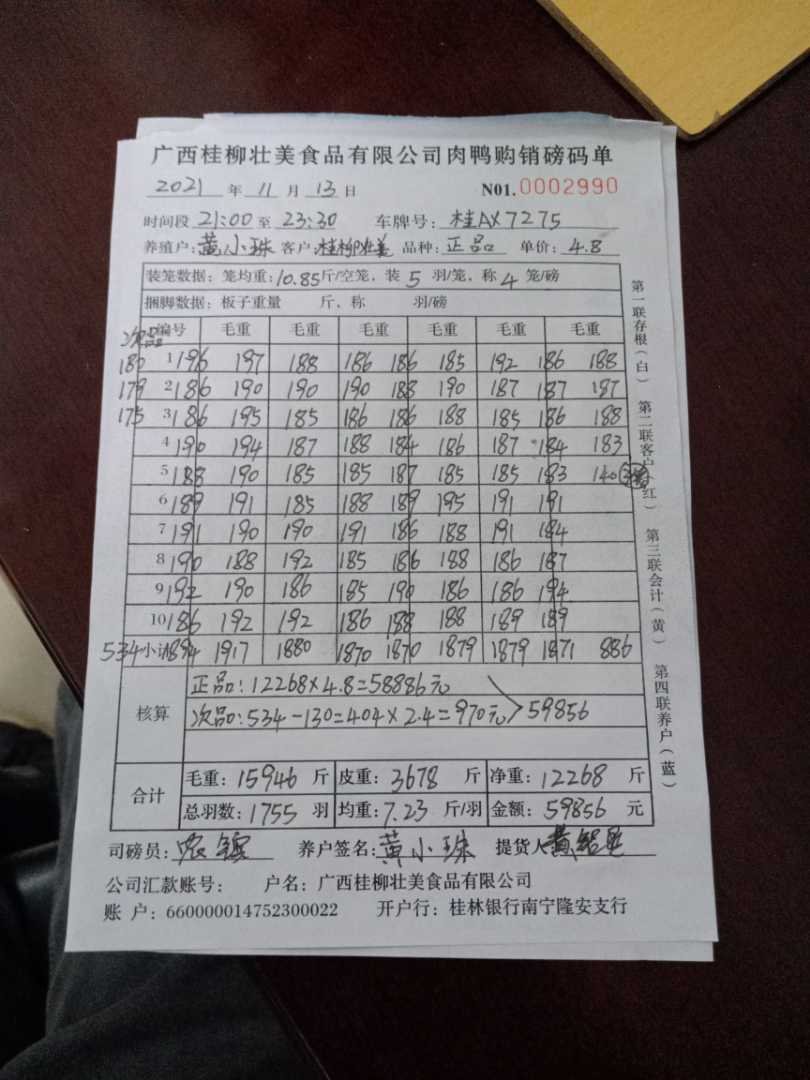 广西桂柳壮美食品有限公司肉鸭购销磅码单
2021 年 11 月 13 日 N01.0002990
时间段 21:00 至 23:30 车牌号: 桂AX7275
养殖户: 黄小珠 客户: 桂柳壮美 品种: 正品 单价: 4.8
装笼数据: 笼均重: 10.85斤/空笼, 装 5 羽/笼、称 4 笼/磅
捆脚数据: 板子重量 斤、称 羽/磅
次品 编号 毛重 毛重 毛重 毛重 毛重 毛重
180 1 196 197 188 186 186 185 192 186 188
179 2 186 190 190 190 188 190 187 187 187
175 3 186 195 185 186 186 188 185 186 188
4 190 194 187 188 184 186 187 184 183
5 188 190 185 185 187 185 185 183 140
6 189 191 185 188 189 195 191 191
7 191 190 190 191 186 188 191 184
8 190 188 192 185 186 188 186 187
9 192 190 186 185 190 186 186 194
10 186 192 192 186 188 188 189 189
534 小计 1894 1917 1880 1870 1870 1879 1879 1871 886
核算
正品: 12268×4.8=58886元
次品: 534-130=404×2.4=970元 > 59856
合计
毛重: 15946 斤 皮重: 3678 斤 净重: 12268 斤
总羽数: 1755 羽 均重: 7.23 斤/羽 金额: 59856 元
司磅员: 养户签名: 黄小珠 提货人
公司汇款账号: 户名: 广西桂柳壮美食品有限公司
账 户: 660000014752300022 开户行: 桂林银行南宁隆安支行
第一联存根(白) 第二联客户(红) 第三联会计(黄) 第四联养户(蓝)